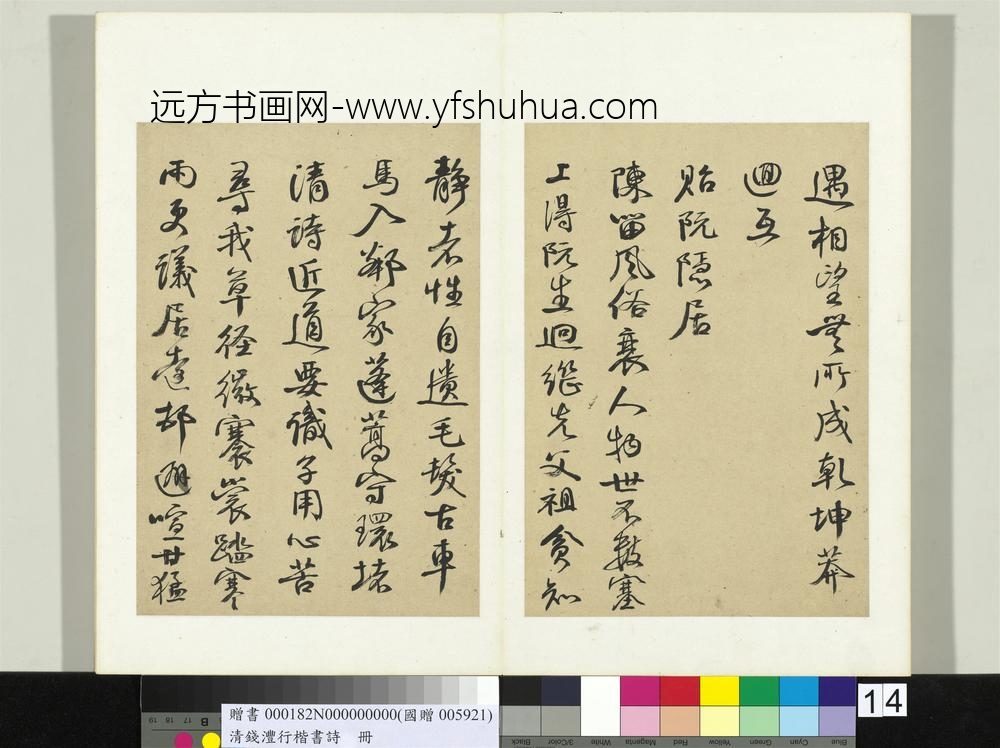 远方书画网-www.yfshuhua.com
遇相望無所成乾坤莽
迴互
貽阮隱居
陳留風俗衰人物世不數塞
上得阮生迥繼先父祖貧知
靜者性自遺毛髮古車
馬入鄰家蓬蒿守環堵
清詩近道要識子用心苦
尋我草徑微褰裳踏寒
雨更議居遠邨避喧甘猛
14
贈書 000182N000000000(國贈 005921)
清錢灃行楷書詩 冊
19 18 17 16 B
Black 3/Color White Magenta Red Yellow Green Cyan Blue